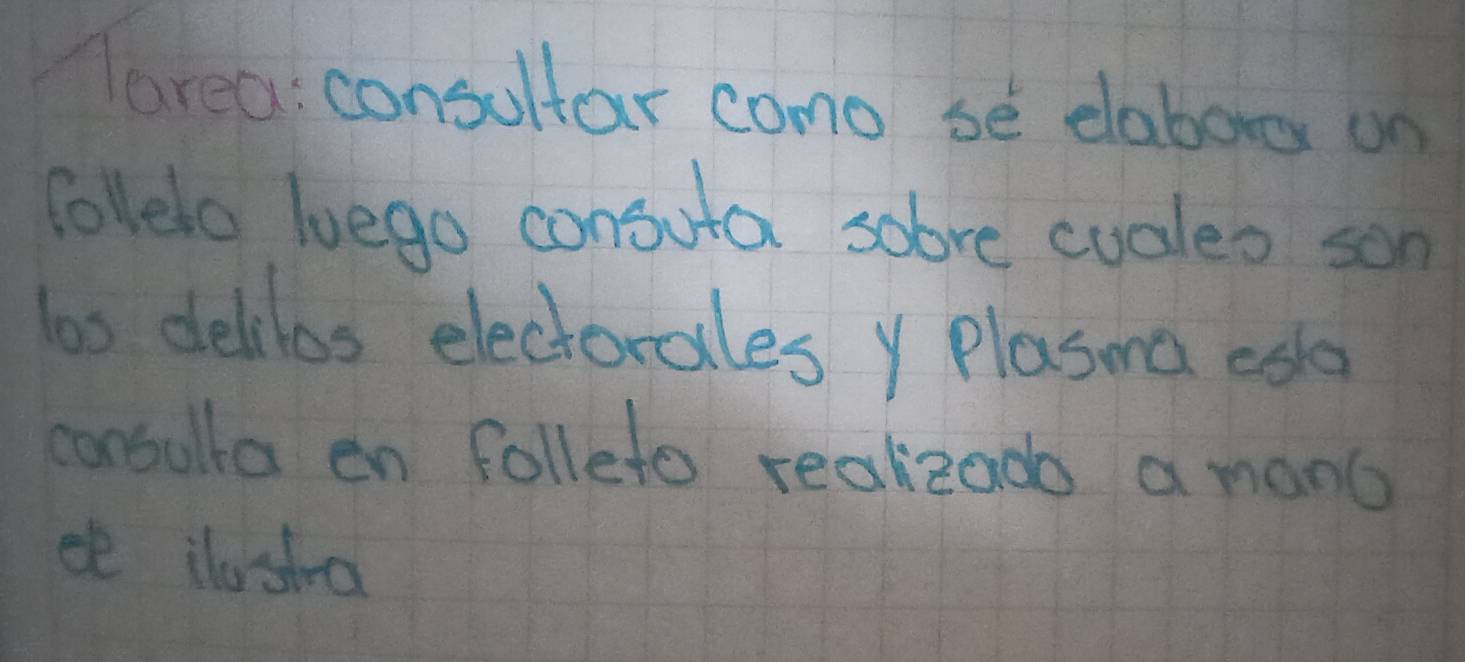 Tarea: consultar como sé elabora un
folleto luego consuta sobre cuales son
los delitos electorales y Plasma esta
consulta en folleto realizado a mano
e ilustra